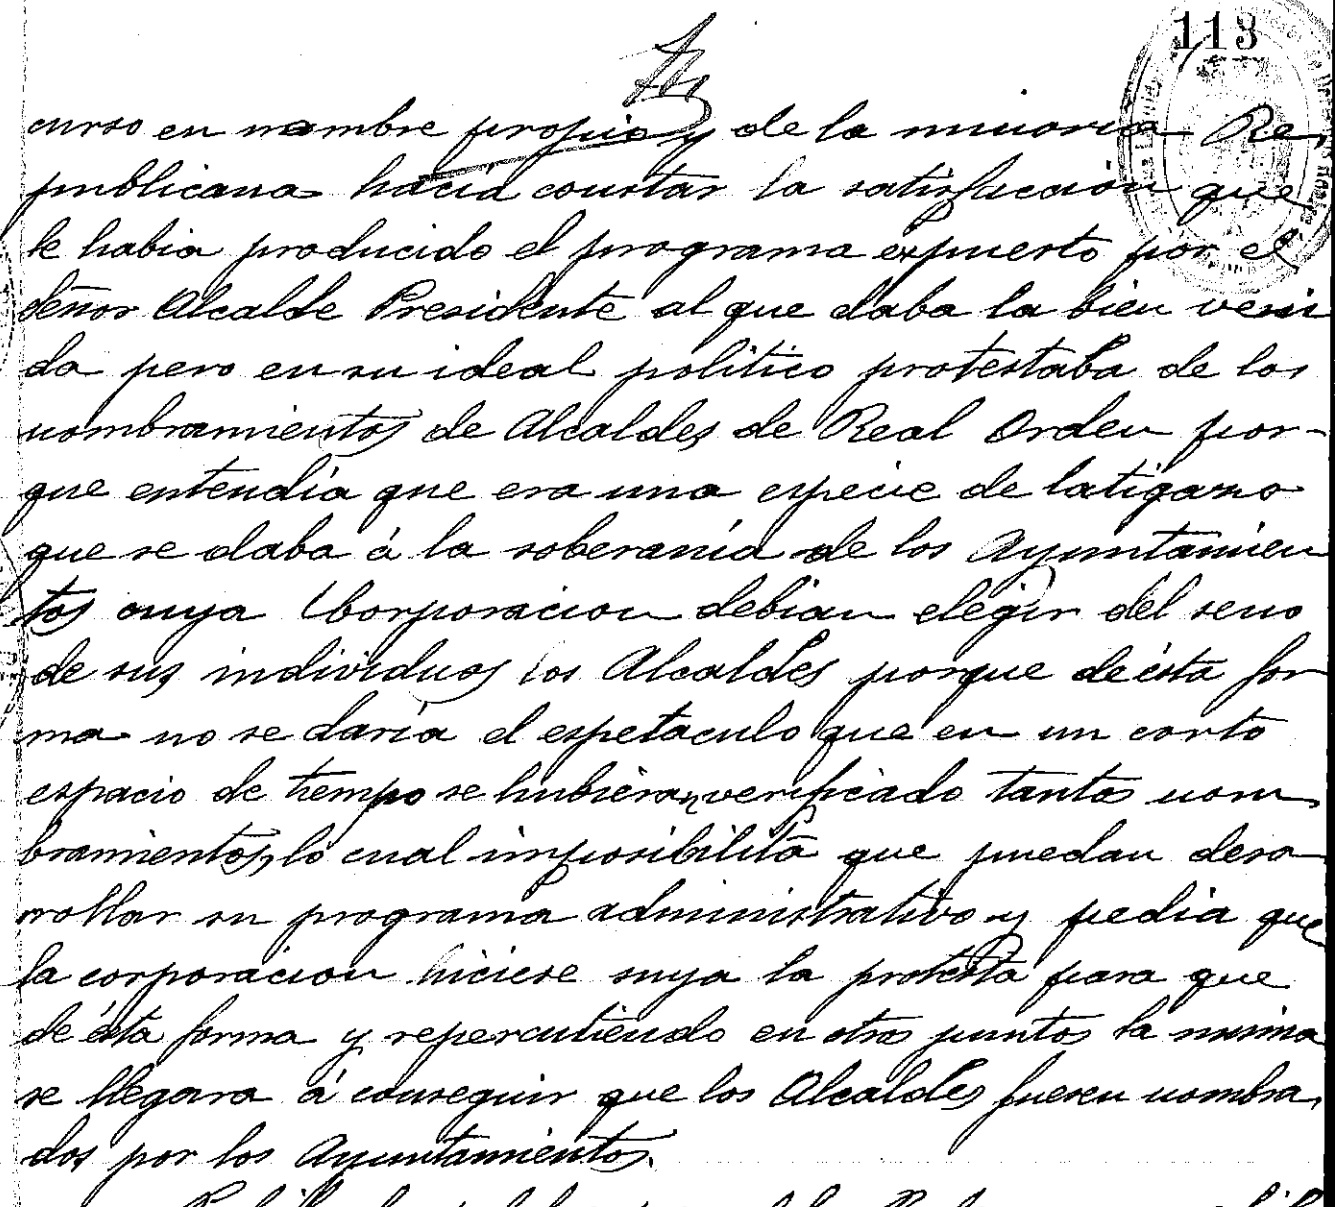 113
curso en nombre propio y de la minoria Re-
publicana hacia constar la satisfaccion que
le habia producido el programa expuesto por el
Señor Alcalde Presidente al que daba la bien veni
da pero en su ideal politico protestaba de los
nombramientos de Alcaldes de Real Orden por-
que entendia que era una especie de latigazo
que se daba á la soberania de los Ayuntamien
tos cuya Corporacion debian elegir del seno
de sus individuos los Alcaldes porque de ésta for
ma no se daria el espetaculo que en un corto
espacio de tiempo se hubieran verificado tantos nom
bramientos, lo cual imposibilita que puedan desa
rrollar su programa administrativo y pedia que
la corporacion hiciese suya la protesta para que
de ésta forma y repercutiendo en otros puntos la misma
se llegara á conseguir que los Alcaldes fuesen nombra
dos por los Ayuntamientos.